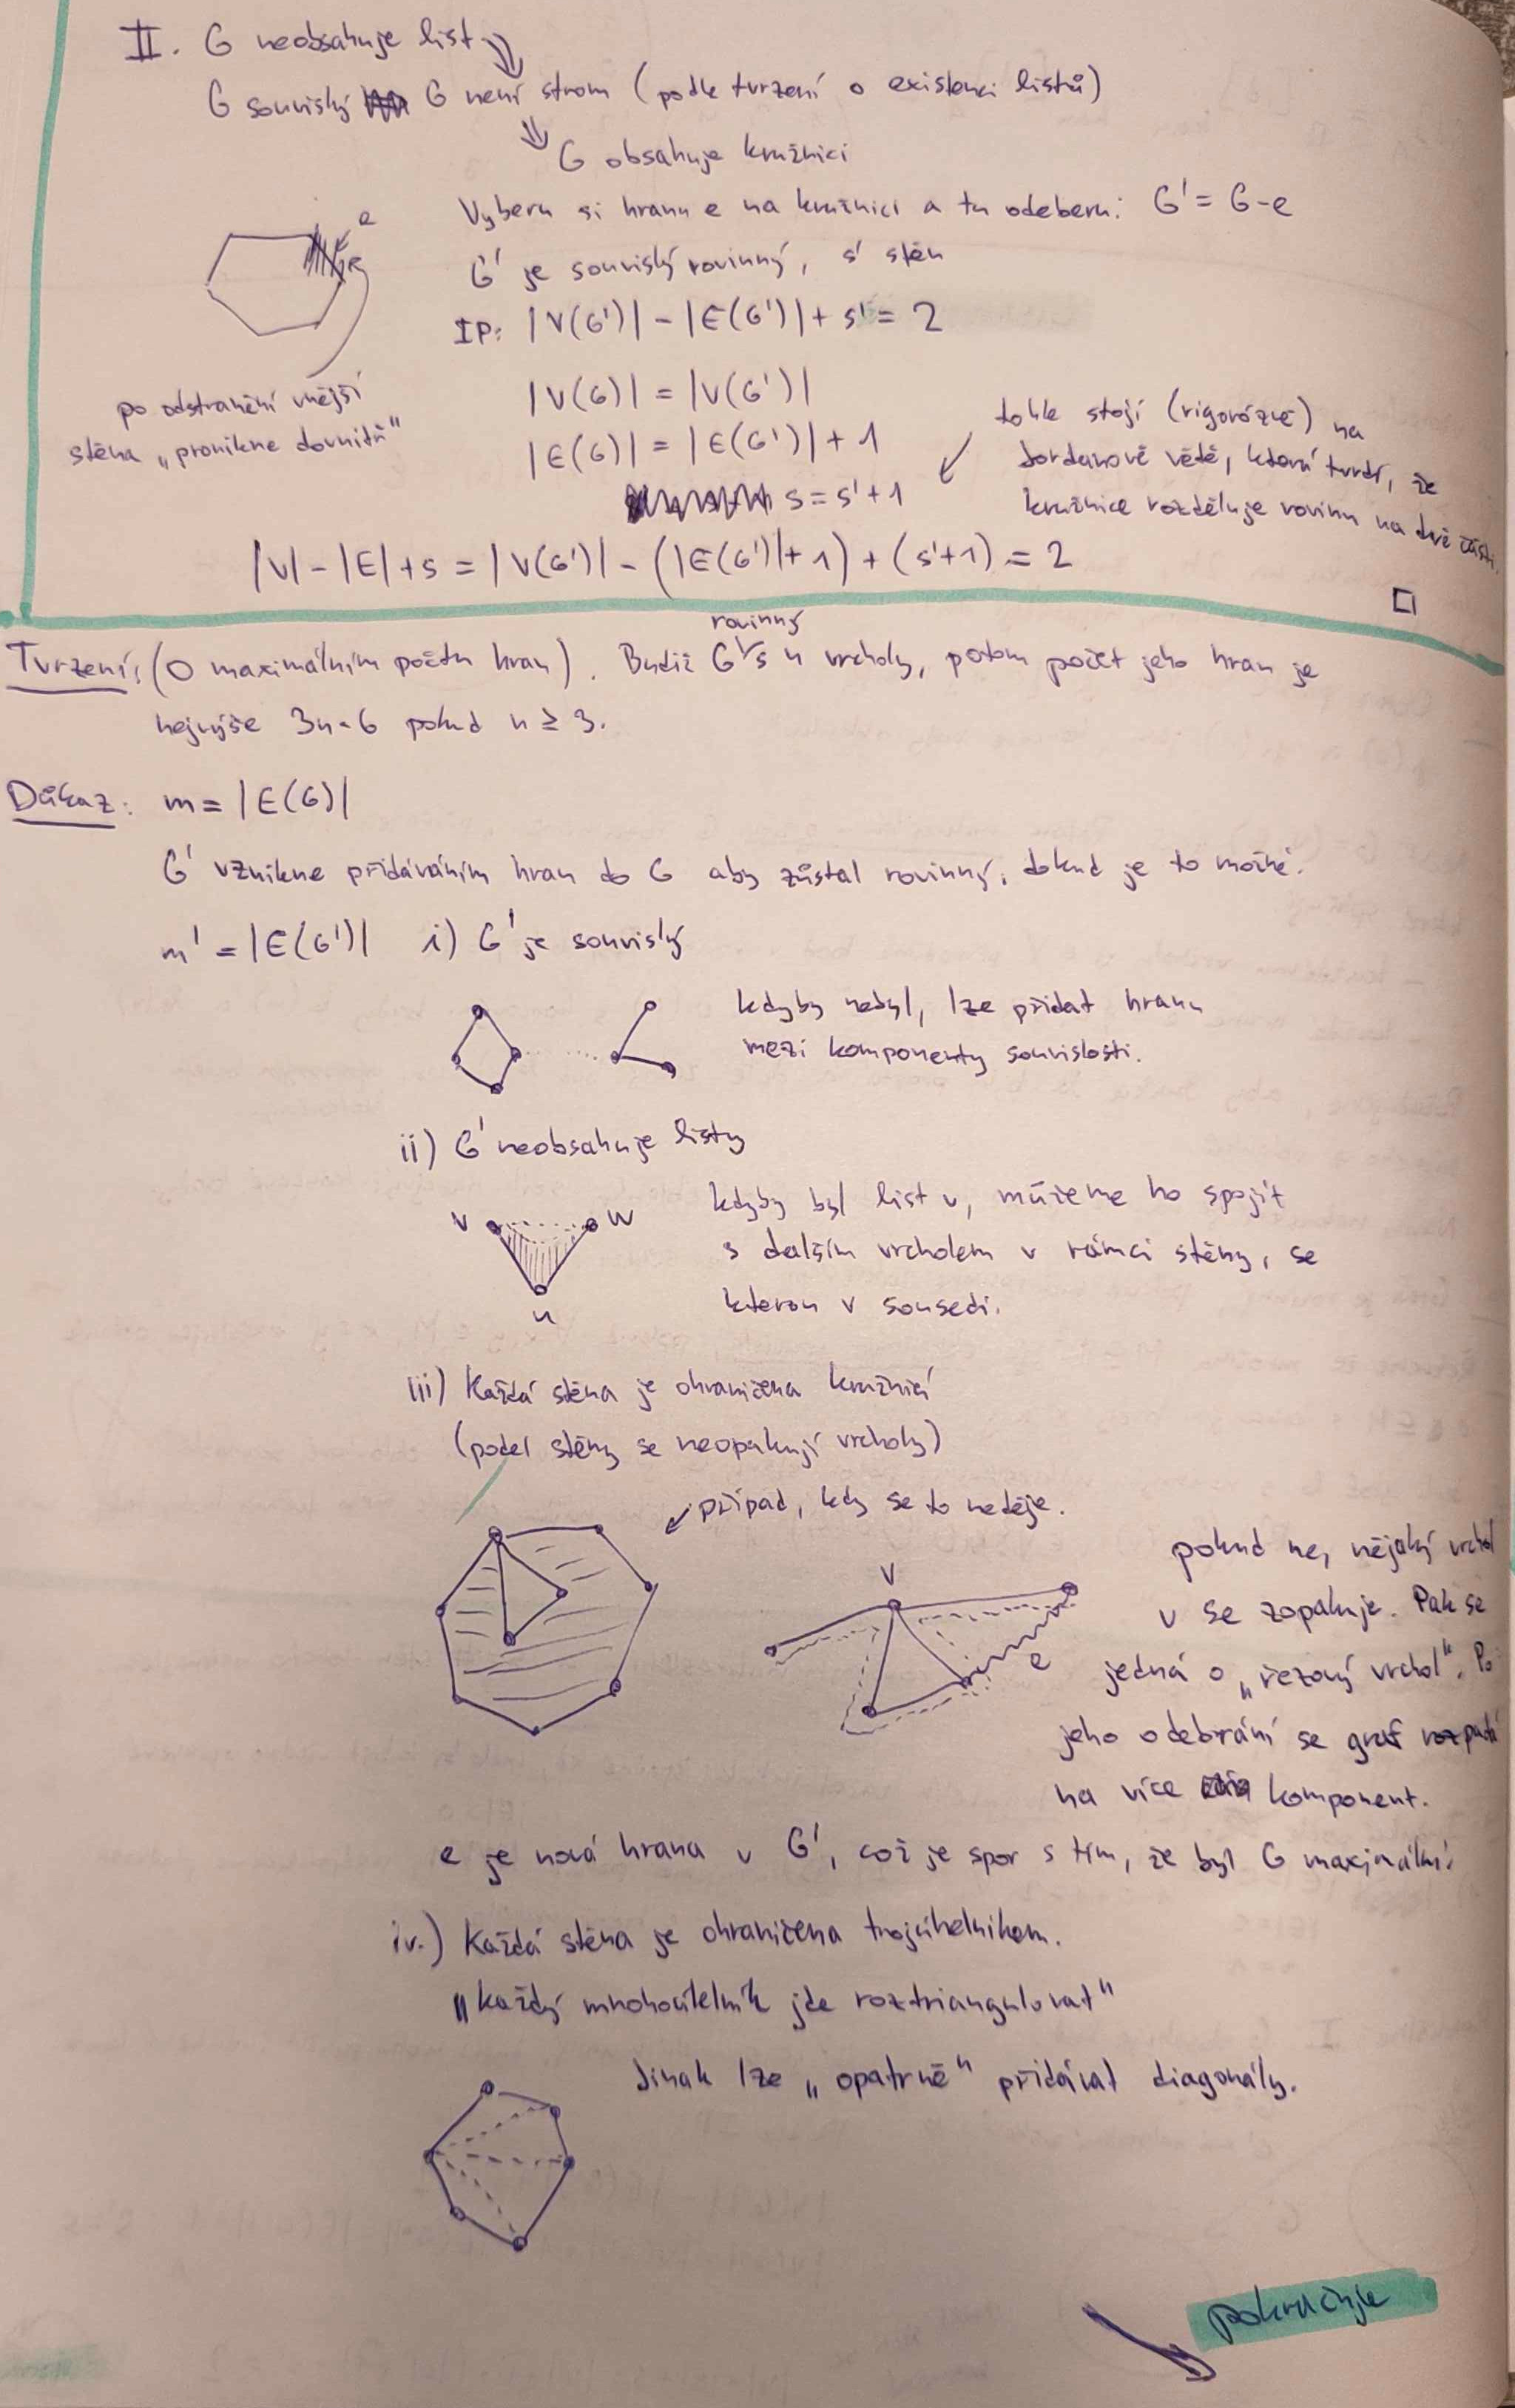 II. G neobsahuje list
G souvislý G není strom (podle tvrzení o existenci listů)
G obsahuje kružnici
Vyberu si hranu e na kružnici a tu odeberu: G' = G-e
e
G' je souvislý rovinný, s' stěn
IP: |V(G')| - |E(G')| + s' = 2
po odstranění vnější
stěna „pronikne dovnitř"
|V(G)| = |V(G')|
|E(G)| = |E(G')| + 1
s = s' + 1
tohle stojí (rigorózně) na
Jordanově větě, která tvrdí, že
kružnice rozděluje rovinu na dvě části.
|V| - |E| + s = |V(G')| - (|E(G')| + 1) + (s'+1) = 2
□
Tvrzení: (O maximálním počtu hran). Budiž G rovinný s n vrcholy, potom počet jeho hran je
nejvýše 3n-6 pokud n ≥ 3.
Důkaz: m = |E(G)|
G' vznikne přidáváním hran do G aby zůstal rovinný, dokud je to možné.
m' = |E(G')| i) G' je souvislý
kdyby nebyl, lze přidat hranu
mezi komponenty souvislosti.
ii) G' neobsahuje listy
kdyby byl list v, můžeme ho spojit
s dalším vrcholem v rámci stěny, se
kterou v sousedí.
v w
u
iii) Každá stěna je ohraničena kružnicí
(podél stěny se neopakují vrcholy)
případ, kdy se to neděje.
v
e
pokud ne, nějaký vrchol
v se zopakuje. Pak se
jedná o „řezový vrchol". Po
jeho odebrání se graf rozpadá
na více komponent.
e je nová hrana v G', což je spor s tím, že byl G maximální.
iv.) Každá stěna je ohraničena trojúhelníkem.
„každý mnohoúhelník jde roztriangulovat"
Jinak lze „opatrně" přidávat diagonály.
pokračuje